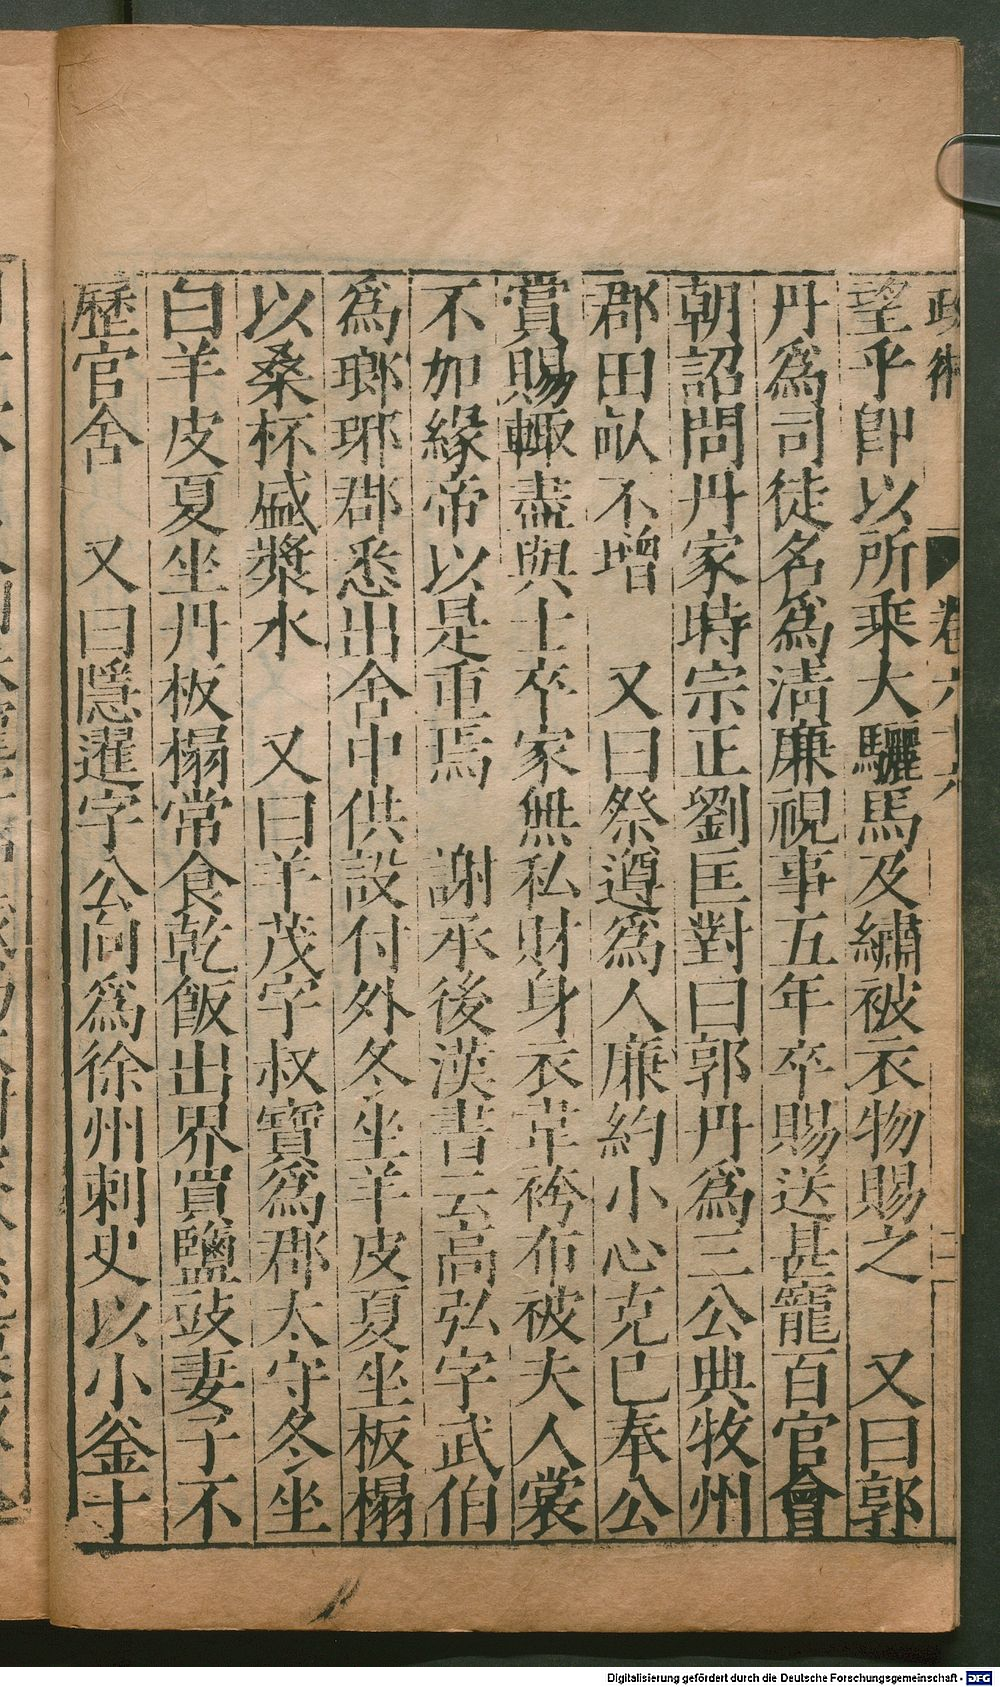 望乎即以所乘大驪馬及繡被衣物賜之　又曰郭
丹爲司徒名爲清廉視事五年卒賜送甚寵百官會
朝詔問丹家時宗正劉匡對曰郭丹爲三公典牧州
郡田畝不增　又曰祭遵爲人廉約小心克已奉公
賞賜輙盡與士卒家無私財身衣韋袴布被夫人裳
不加緣帝以是重焉　謝承後漢書云高弘字武伯
爲瑯琊郡悉出舍中供設付外冬坐羊皮夏坐板榻
以桑杯盛漿水　又曰羊茂字叔寶爲郡太守冬坐
白羊皮夏坐丹板榻常食乾飯出界買鹽豉妻子不
歷官舍　又曰隱暹字公向爲徐州刺史以小釜十
卷六十六
Digitalisierung gefördert durch die Deutsche Forschungsgemeinschaft - DFG